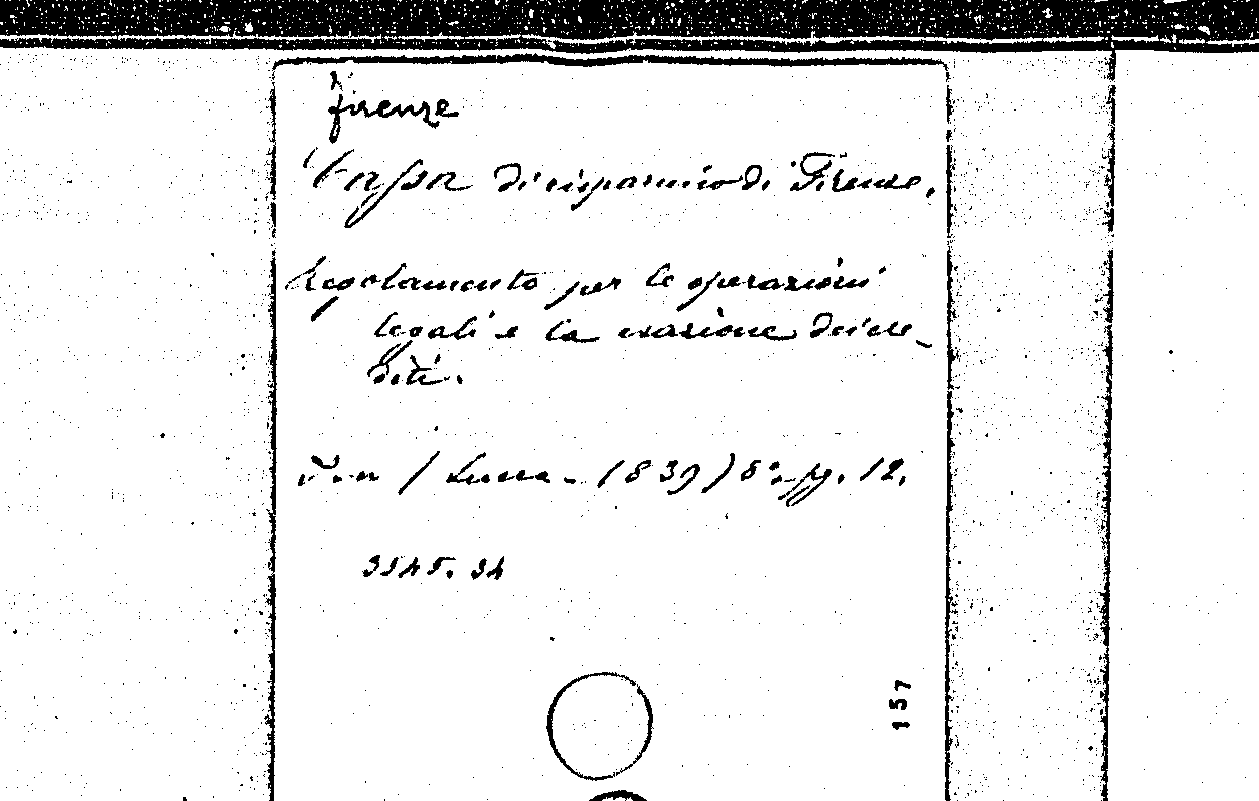 Firenze
Cassa di risparmio di Firenze.
Regolamento per le operazioni
legali e la evasione dei cre-
diti.
/ Lucca - 1839) 8°. pg. 12.
3545. 34
157